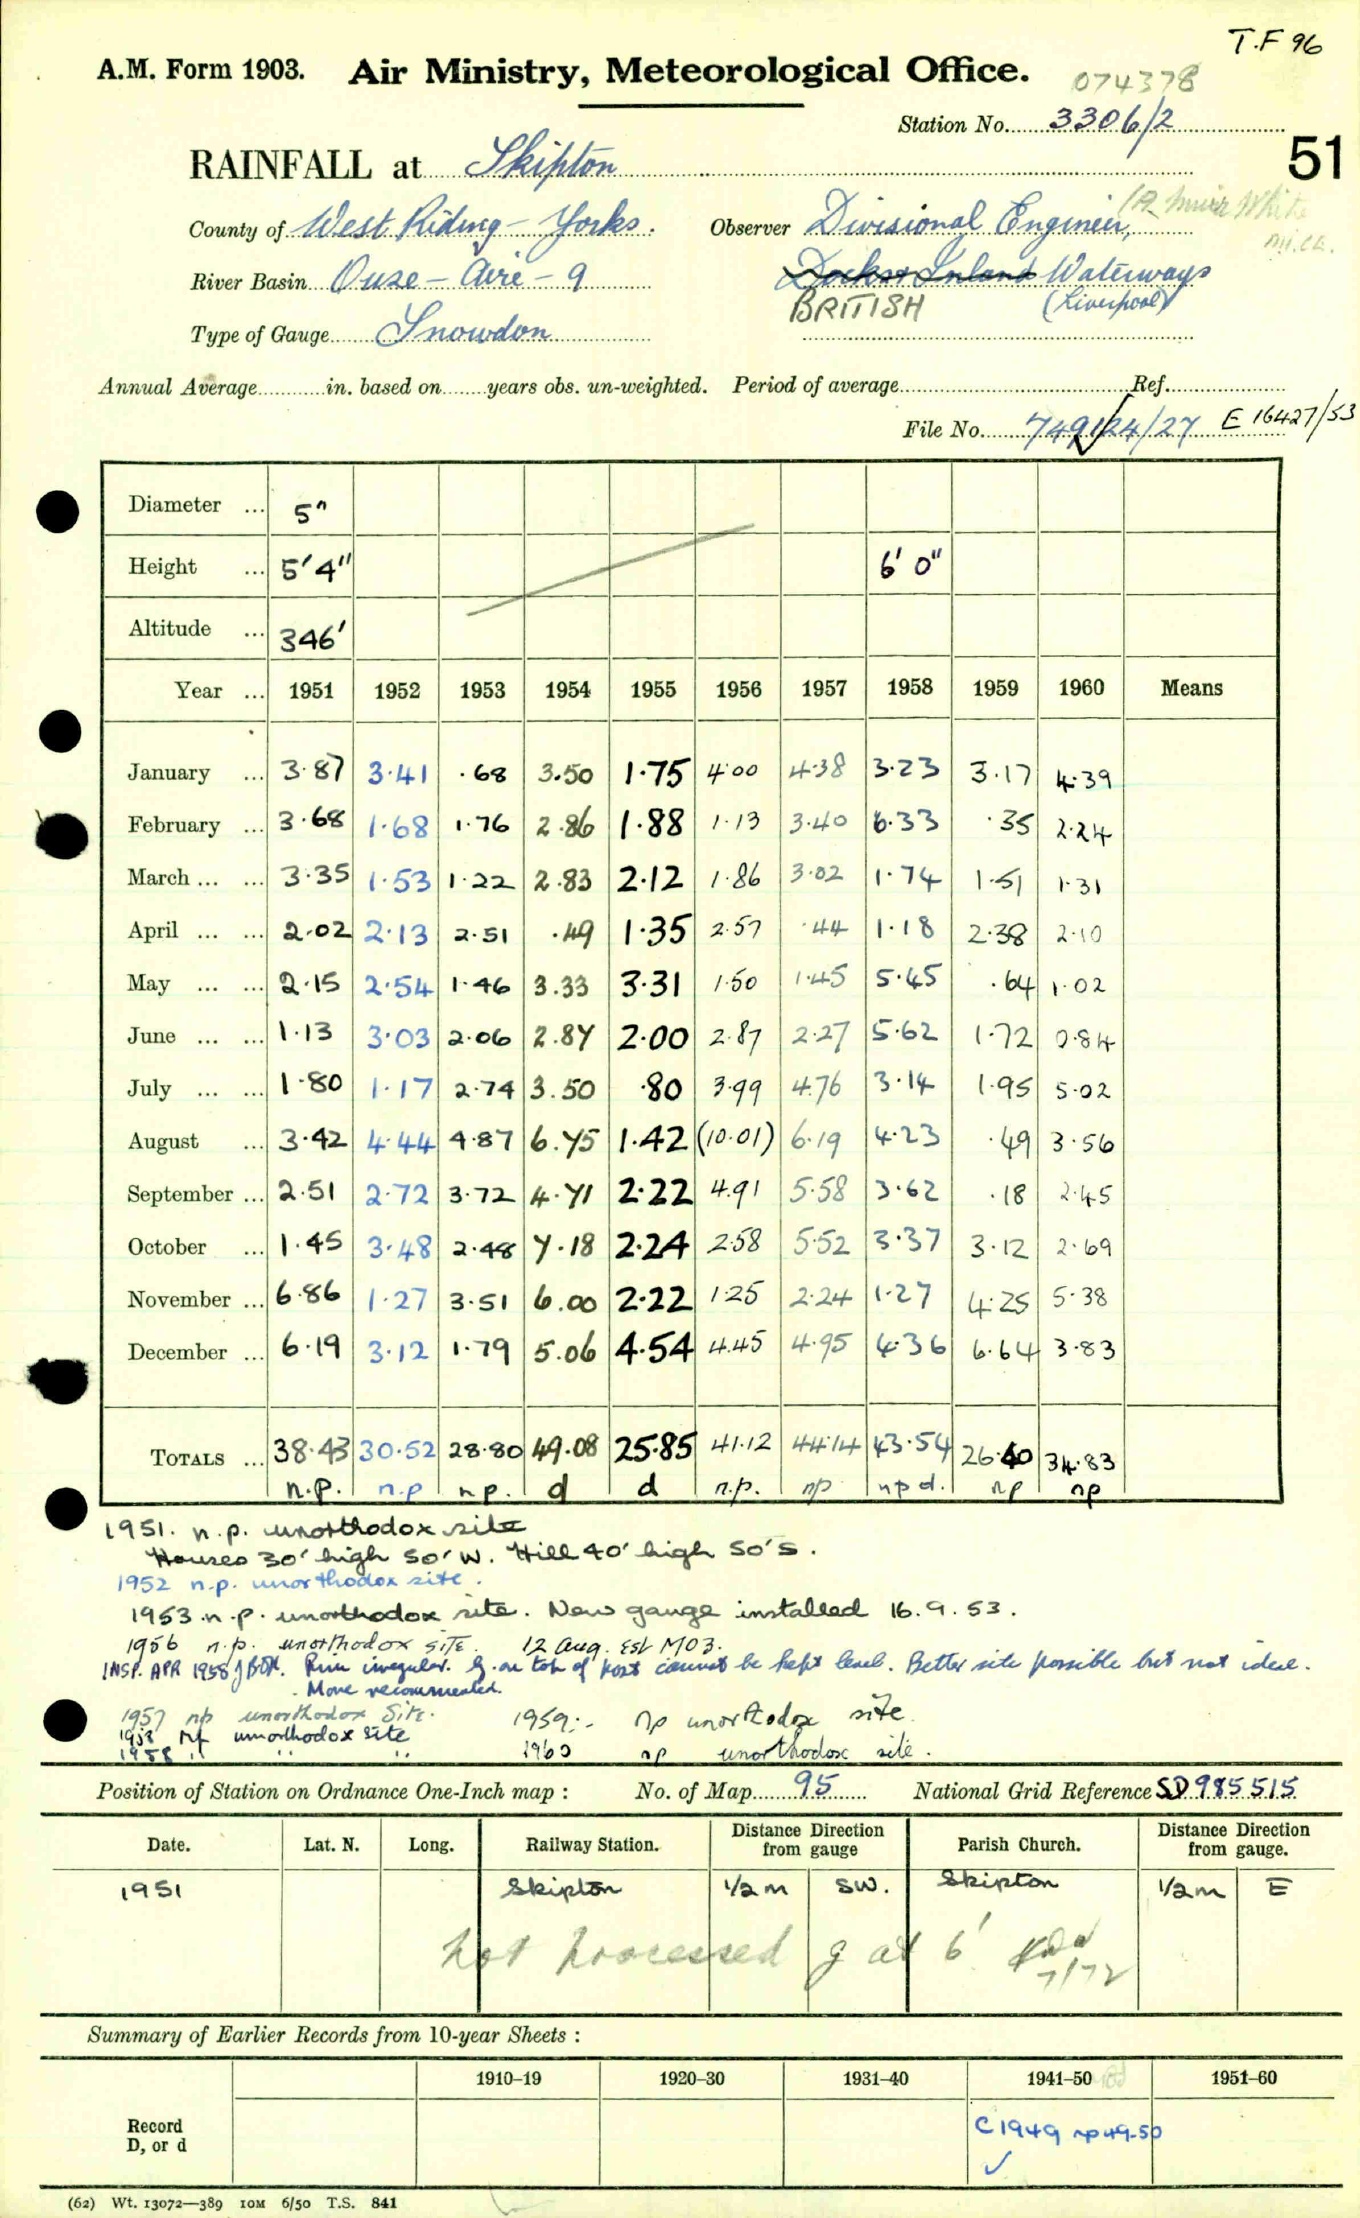 T.F 96
A.M. Form 1903. Air Ministry, Meteorological Office.
074378
Station No. 3306/2
51
RAINFALL at Skipton
County of West Riding - Yorks. Observer Divisional Engineer, (A. Muir White
M.I.C.E.
River Basin Ouse - Aire - 9 Docks & Inland Waterways
BRITISH (Liverpool)
Type of Gauge Snowdon
Annual Average in. based on years obs. un-weighted. Period of average Ref.
File No. 749124/27 E 16427/53
Diameter ... 5"
Height ... 5'4" 6'0"
Altitude ... 346'
Year ... 1951 1952 1953 1954 1955 1956 1957 1958 1959 1960 Means
January ... 3.87 3.41 .68 3.50 1.75 4.00 4.38 3.23 3.17 4.39
February ... 3.68 1.68 1.76 2.86 1.88 1.13 3.40 6.33 .35 2.24
March ... ... 3.35 1.53 1.22 2.83 2.12 1.86 3.02 1.74 1.51 1.31
April ... ... 2.02 2.13 2.51 .49 1.35 2.57 .44 1.18 2.38 2.10
May ... ... 2.15 2.54 1.46 3.33 3.31 1.50 1.45 5.45 .64 1.02
June ... ... 1.13 3.03 2.06 2.87 2.00 2.87 2.27 5.62 1.72 0.84
July ... ... 1.80 1.17 2.74 3.50 .80 3.99 4.76 3.14 1.95 5.02
August ... 3.42 4.44 4.87 6.75 1.42 (10.01) 6.19 4.23 .49 3.56
September ... 2.51 2.72 3.72 4.71 2.22 4.91 5.58 3.62 .18 2.45
October ... 1.45 3.48 2.48 7.18 2.24 2.58 5.52 3.37 3.12 2.69
November ... 6.86 1.27 3.51 6.00 2.22 1.25 2.24 1.27 4.25 5.38
December ... 6.19 3.12 1.79 5.06 4.54 4.45 4.95 4.36 6.64 3.83
TOTALS ... 38.43 30.52 28.80 49.08 25.85 41.12 44.14 43.54 26.40 34.83
n.p. n.p n.p. d d n.p. np np d. np np
1951. n.p. unorthodox site
Houses 30' high 50' W. Hill 40' high 50' S.
1952 n.p. unorthodox site.
1953 n.p. unorthodox site. New gauge installed 16.9.53.
1956 n.p. unorthodox site. 12 Aug. Est M03.
INSP. APR 1958 Rim irregular. G. on top of post cannot be kept level. Better site possible but not ideal.
Move recommended.
1957 np unorthodox site. 1959:- np unorthodox site
1958 np unorthodox site
1958 " " " 1960 np unorthodox site.
Position of Station on Ordnance One-Inch map : No. of Map 95 National Grid Reference SD 985515
Date. Lat. N. Long. Railway Station. Distance Direction from gauge Parish Church. Distance Direction from gauge.
1951 Skipton 1/2 m SW. Skipton 1/2 m E
not processed g at 6'
7/72
Summary of Earlier Records from 10-year Sheets :
1910–19 1920–30 1931–40 1941–50 1951–60
Record
D, or d
C1949 np 49-50
✓
(62) Wt. 13072—389 10M 6/50 T.S. 841